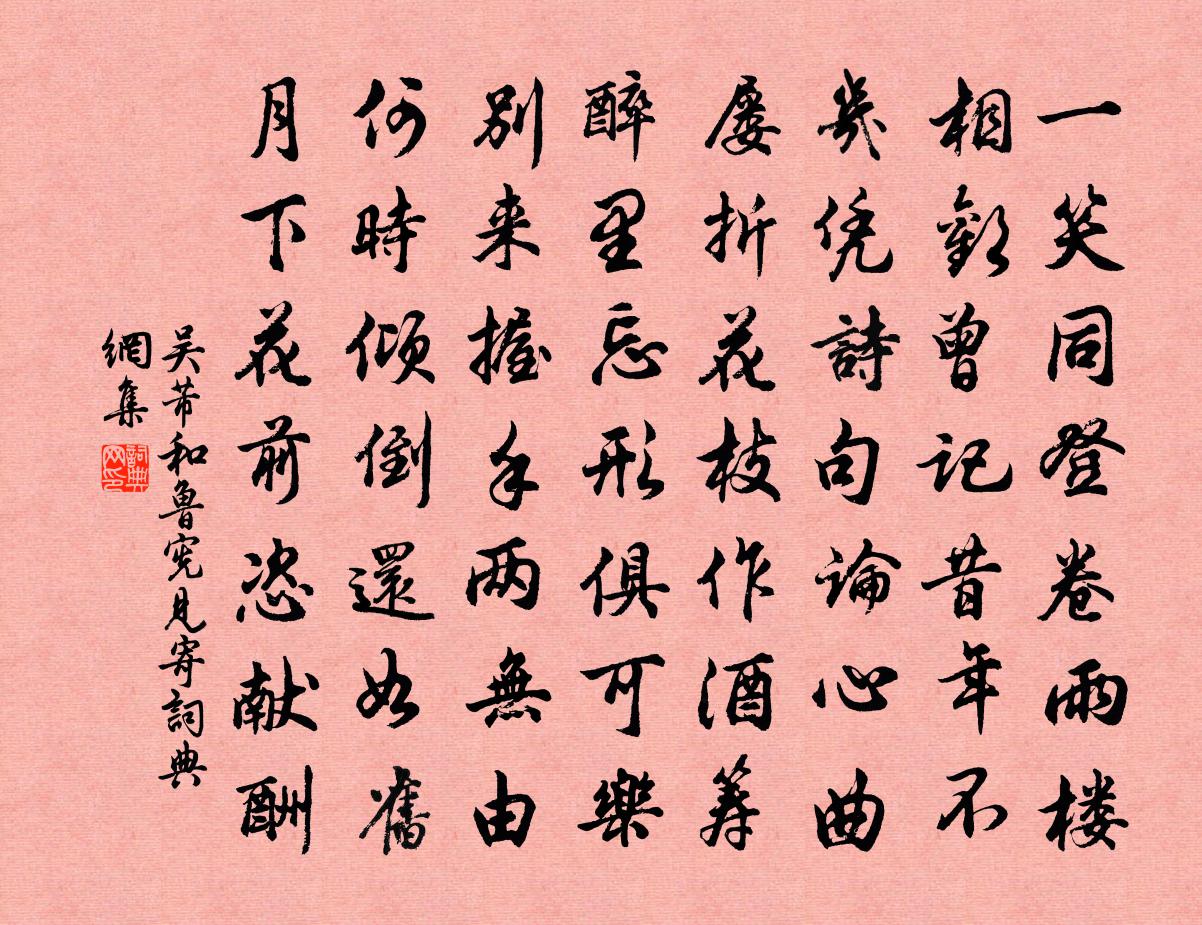 一笑同登卷雨楼
相歡曾記昔年不
幾凭詩句論心曲
屡折花枝作酒筹
醉里忘形俱可樂
别来握手两無由
何時倾倒還如舊
月下花前恣献酬
吴芾和鲁宪見寄詞典
網集
詞典
网印